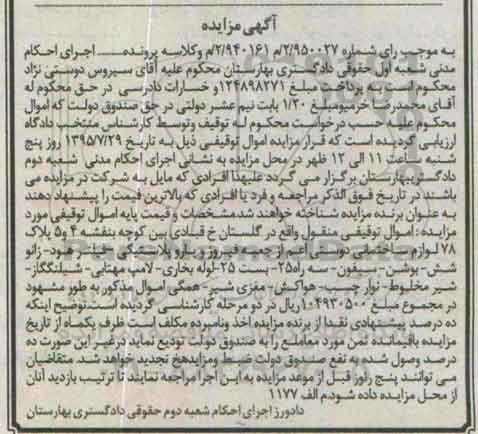 آگهی مزایده
به موجب رای شماره ۲/۹۵۰۰۲۷/م ۲/۹۴۰۱۶۱/م وکلاسه پرونده.... اجرای احکام
مدنی شعبه اول حقوقی دادگستری بهارستان محکوم علیه آقای سیروس دوستی نژاد
محکوم است به پرداخت مبلغ ۱۲۴۸۹۸۲۷۱و خسارات دادرسی در حق محکوم له
آقای محمدرضا خرمیومبلغ ۱/۲۰ بابت نیم عشر دولتی در حق صندوق دولت که اموال
محکوم علیه حسب درخواست محکوم له توقیف وتوسط کارشناس منتخب دادگاه
ارزیابی گردیده است که قرار مزایده اموال توقیفی ذیل به تاریخ ۱۳۹۵/۷/۲۹ روز پنج
شنبه ساعت ۱۱ الی ۱۲ ظهر در محل مزایده به نشانی اجرای احکام مدنی شعبه دوم
دادگستریبهارستان برگزار می گردد علیهذا افرادی که مایل به شرکت در مزایده می
باشند در تاریخ فوق الذکر مراجعه و فرد یا افرادی که بالاترین قیمت را پیشنهاد دهند
به عنوان برنده مزایده شناخته خواهند شد مشخصات و قیمت پایه اموال توقیفی مورد
مزایده: اموال توقیفی منقول واقع در گلستان خ قبادی بین کوچه بنفشه ۴ و۵ پلاک
۷۸ لوازم ساختمانی دوستی اعم از چسب فیروز و رارو پلاستیکی - فیلتر هود- زانو
شش- بوشن- سیفون- سه راه۲۵- بست ۲۵-لوله بخاری- لامپ مهتابی- شیلنگگاز-
شیر مخلوط- نوار چسب- هواکش- مغزی شیر- همگی اموال مذکور به طور مشهود
در مجموع مبلغ ۱۰۴۹۳۰۵۰۰ریال در دو مرحله کارشناسی گردیده است.توضیح اینکه
ده درصد پیشنهادی نقدا از برنده مزایده اخذ ونامبرده مکلف است ظرف یکماه از تاریخ
مزایده باقیمانده ثمن مورد معامله را به صندوق دولت تودیع نماید درغیر این صورت ده
درصد وصول شده به نفع صندوق دولت ضبط ومزایدهخ تجدید خواهد شد. متقاضیان
می توانند پنج رئوز قبل از موعد مزایده به این اجرا مراجعه نمایند تا ترتیب بازدید آنان
از محل مزایده داده شود.م الف ۱۱۷۷
دادورز اجرای احکام شعبه دوم حقوقی دادگستری بهارستان